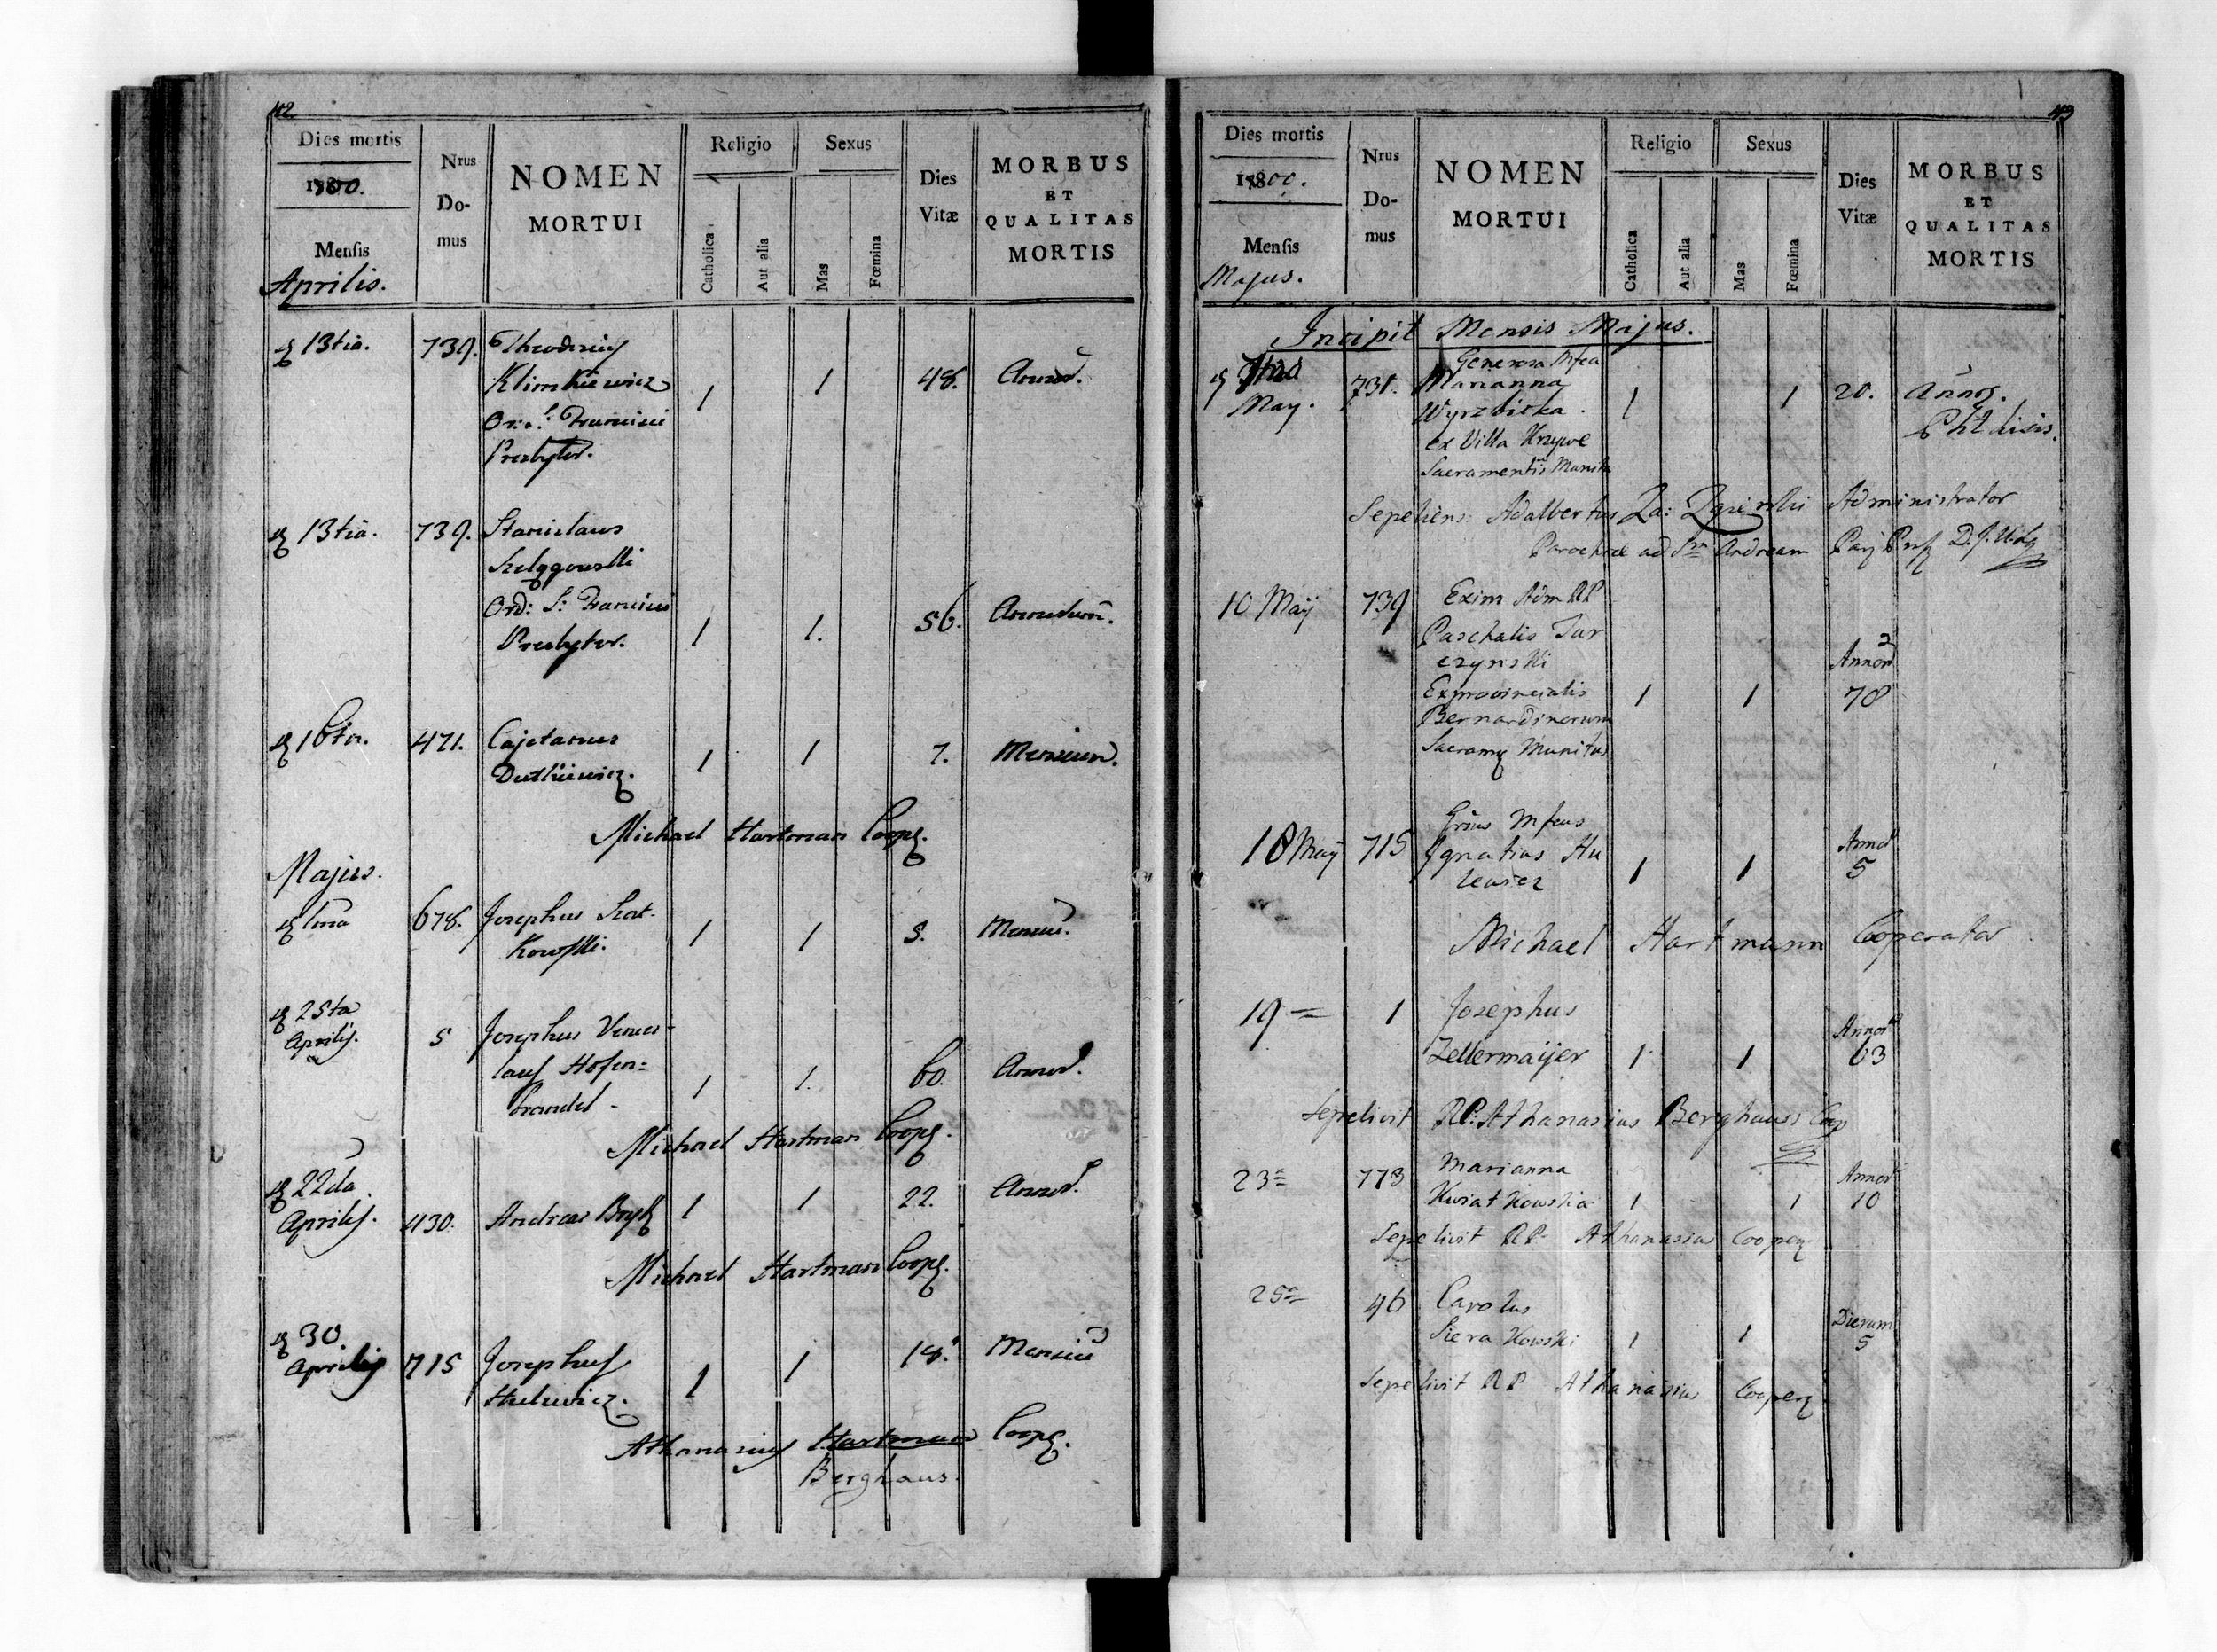 42.
Dies mortis
1800.
Mensis
Aprilis.
Nrus
Do-
mus
NOMEN
MORTUI
Religio
Catholica
Aut alia
Sexus
Mas
Fœmina
Dies
Vitæ
MORBUS
ET
QUALITAS
MORTIS
13tia. 739. Theodorus
Klimkiewicz 1 1 48. Annor.
Ord. S. Francisci
Presbyter.
13tia. 739. Stanislaus
Ord: S: Francisci
Presbyter. 1 1. 56. Annorum.
16ta. 471. Cajetanus
Dutkiewicz. 1 1 7. Mensium.
Michael Hartman Coop.
Majus.
1ma 678. Josephus Szat-
kowski. 1 1 5. Mensiu.
25ta
Aprilis. 5 Josephus Vences-
laus Hofen=
brandel 1 1. 60. Annor.
Michael Hartman Coop.
22da
Aprilis. 430. Andreas 1 1 22. Annor.
Michael Hartman Coop.
30.
Aprilis 715 Josephus
Hulewicz. 1 1 18. Mensiu
Athanasius Hartman Coop.
Berghaus.
43
Dies mortis
1800.
Mensis
Majus.
Nrus
Do-
mus
NOMEN
MORTUI
Religio
Catholica
Aut alia
Sexus
Mas
Fœmina
Dies
Vitæ
MORBUS
ET
QUALITAS
MORTIS
Incipit Mensis Majus.
Generosa Mfca
731. Marianna
May. Wyrzbicka. 1 1 20. Annor.
Phthisis.
ex Villa Krzywe
Sacramentis Munita
Sepeliens: Adalbertus Za: Administrator
Parochiæ ad Sm Andream
10 Maij 739 Exim Adm RP
Paschalis Tur
czynski
Exprovincialis 1 1 Annor 78
Bernardinorum
Sacram Munitus
18 Maij 715 Grsus Mfcus
Ignatius Hu
lewicz 1 1 Annor 5
Michael Hartmann Cooperator
19 = 1 Josephus
Zellermaijer 1 1 Annor 63
Sepelivit RP: Athanasius Berghauss Coop
23= 773 Marianna
Kwiatkowska 1 1 Annor 10
Sepelivit RP Athanasius Cooper
25= 96 Carolus
Sierakowski 1 1 Dierum 5
Sepelivit RP Athanasius Cooper